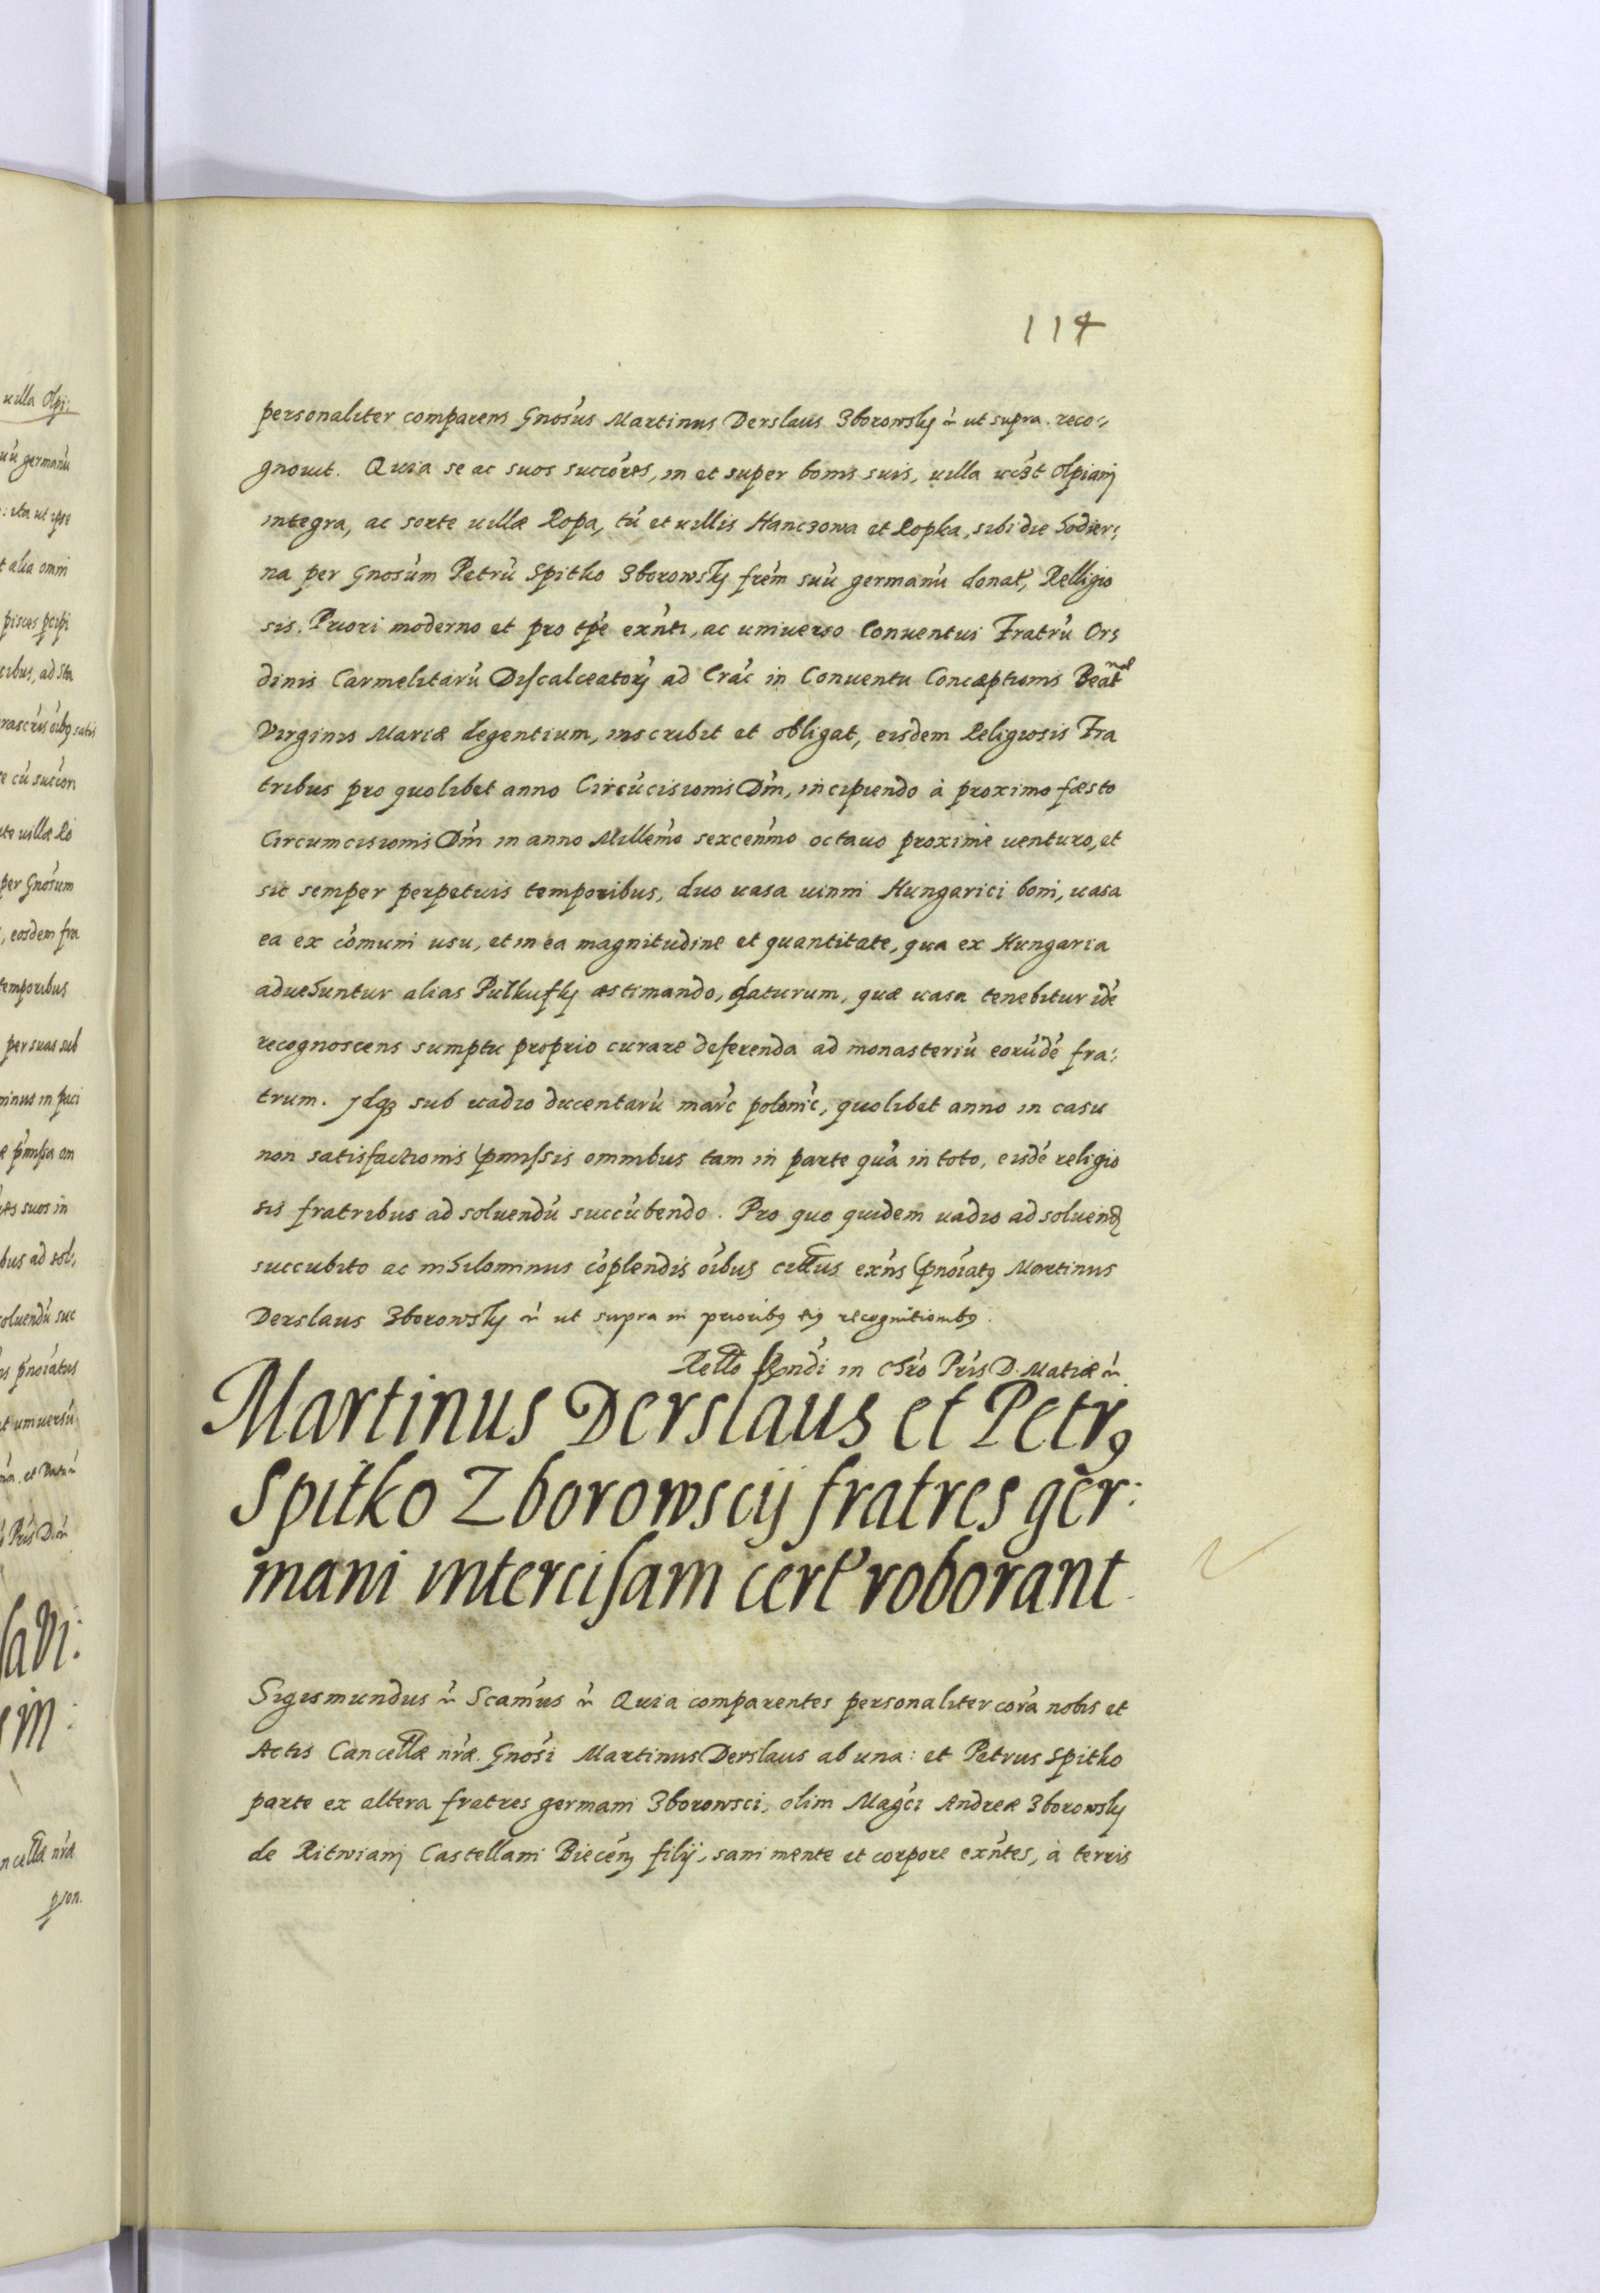 114
personaliter comparens Gnosus Martinus Derslaus Zborowsky ut supra. reco-
gnouit. Quia se ac suos succores, in et super bonis suis, uilla uczt Olpiny
integra, ac sorte uillæ Ropa, tu et uillis Hanczowa et Ropka, sibi die hodier-
na per Gnosum Petru Spitko Zborowsky frem suu germanu donat, Relligio
sis. Priori moderno et pro tpe exnti, ac uniuerso Conuentui Fratru Or-
dinis Carmelitaru Discalceatory ad Crac in Conuentu Conceptionis Beat
Virginis Mariæ degentium, inscribit et obligat, eisdem Religiosis Fra
tribus pro quolibet anno Circucisionis Dni, incipiendo à proximo fæsto
Circumcisionis Dni in anno Millemo sexcenmo octauo proxime uenturo, et
sic semper perpetuis temporibus, duo uasa uini Hungarici boni, uasa
ea ex comuni usu, et in ea magnitudine et quantitate, qua ex Hungaria
aduehuntur alias Pulkufky æstimando, daturum, quæ uasa tenebitur ide
recognoscens sumptu proprio curare deferenda ad monasteriu eorude fra-
trum. Idq sub uadio ducentaru marc polonic, quolibet anno in casu
non satisfactionis pmissis omnibus tam in parte qua in toto, eisde religio
sis fratribus ad soluendu succubendo. Pro quo quidem uadio ad soluend
succubito ac nihilominus coplendis oibus cittus exns pnoiatq Martinus
Derslaus Zborowsky ut supra in prioribq eiq recognitionibq.
Rello Rndi in Chro Pris D. Matiæ
Martinus Derslaus et Petrq
Spitko Zborowscij fratres ger-
mani intercisam cert roborant
Sigismundus Scamus Quia comparentes personaliter cora nobis et
Actis Cancellæ nræ. Gnosi Martinus Derslaus ab una: et Petrus Spitko
parte ex altera fratres germani Zborowsci, olim Magci Andreæ Zborowsky
de Ritwiany Castellani Biecen filij, sani mente et corpore exntes, à terris